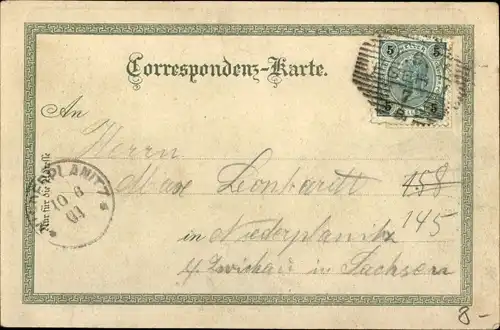 5 5
Correspondenz-Karte.
5 5
An
Herrn
Max Leonhardt 158
145
in Niederplanitz
b/ Zwickau in Sachsen
Nur für die Adresse
NIEDERPLANITZ
10 6
01
8-